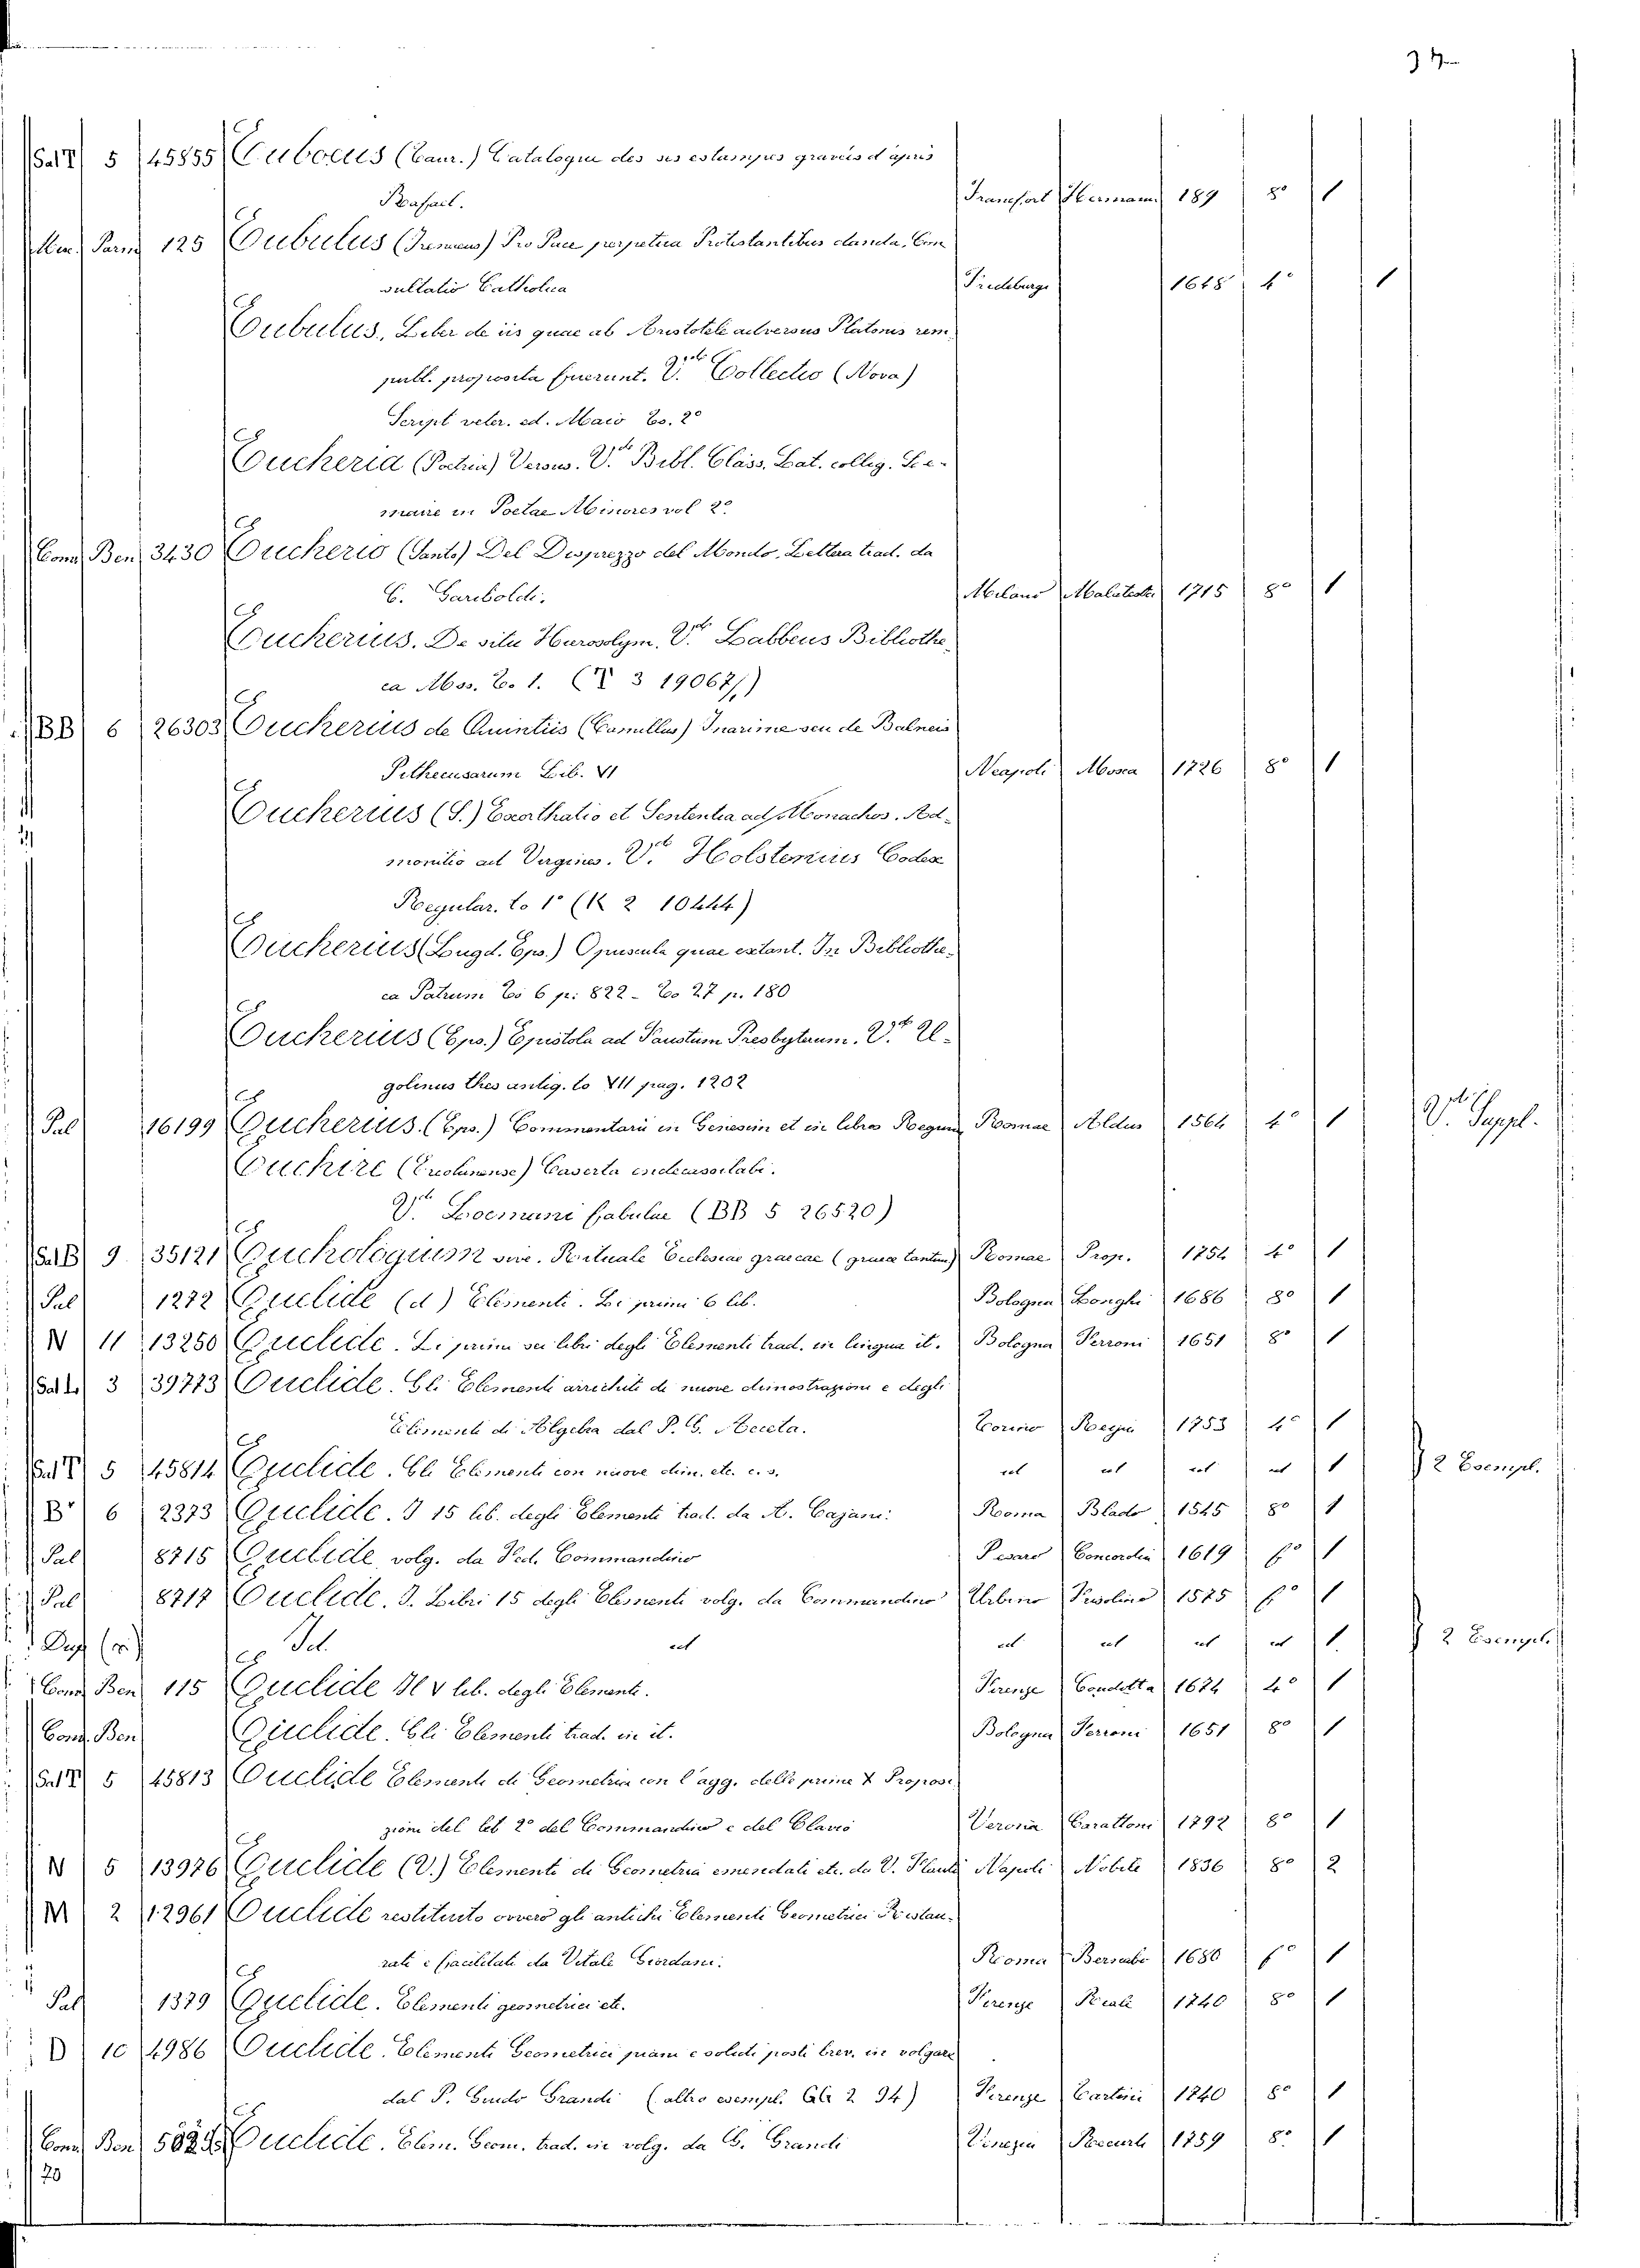 Sal T 5 45855 Eubocus (Caur.) Catalogue des ses estampes gravés d'après
Rafael. Francfort Hermann 189 8° 1
Min. Parm 125 Eubulus (Irenaeus) Pro Pace perpetua Protestantibus danda, Con
sultatio Catholica Friedeburgi 1648 4° 1
Eubulus, Liber de iis quae ab Aristotele adversus Platonis rem
publ. proposita fuerunt. V. Collectio (Nova)
Script veter. ed. Maio To. 2°
Eucheria (Poetria) Versus. V. Bibl. Class. Lat. colleg. Le-
maire in Poetae Minores vol 2°
Conv. Ben 3430 Eucherio (Santo) Del Disprezzo del Mondo. Lettera trad. da
C. Gariboldi. Milano Malatesta 1715 8° 1
Eucherius. De situ Hierosolym. V. Labbeus Bibliothe
ca Mss. To. 1. (T 3 19067)
BB 6 26303 Eucherius de Quintiis (Camillus) Inarime seu de Balneis
Pithecusarum Lib. VI Neapoli Mosca 1726 8° 1
Eucherius (S.) Exorthatio et Sententia ad Monachos. Ad-
monitio ad Virgines. V. Holstenius Codex
Regular. to 1° (K 2 10444)
Eucherius (Lugd. Eps.) Opuscula quae extant. In Bibliothe-
ca Patrum To 6 p: 822 - To 27 p. 180
Eucherius (Eps.) Epistola ad Faustum Presbyterum. V. U-
golinus thes antiq. to VII pag. 1202
Pal 16199 Eucherius. (Eps.) Commentarii in Genesim et in libros Regum Romae Aldus 1564 4° 1 V. Suppl.
Euchire Caserta
V. Locmani fabulae (BB 5 26520)
Sal B 9 35121 Euchologium sive. Rituale Ecclesiae graecae (graece tantum) Romae Prop. 1754 4° 1
Pal 1272 Euclide (d) Elementi. Li primi 6 lib. Bologna Longhi 1686 8° 1
N 11 13250 Euclide. Li primi sei libri degli Elementi trad. in lingua it. Bologna Ferroni 1651 8° 1
Sal L 3 39773 Euclide. Gli Elementi arrichiti di nuove dimostrazioni e degli
Elementi di Algebra dal P. G. Acceta. Torino Regia 1753 4° 1
Sal T 5 45814 Euclide. Gli Elementi con nuove dim. etc. c. s. id id id id 1 2 Esempl.
B 6 2373 Euclide. I 15 lib. degli Elementi trad. da A. Cajani: Roma Blado 1545 8° 1
Pal 8715 Euclide volg. da Fed. Commandino Pesaro Concordia 1619 f° 1
Pal 8717 Euclide. I. Libri 15 degli Elementi volg. da Commandino Urbino Frisolino 1575 f° 1
Dup (r.) Id. id id id id id 1 2 Esempl.
Conv. Ben 115 Euclide Il V lib. degli Elementi. Firenze Condotta 1674 4° 1
Conv. Ben Euclide. Gli Elementi trad. in it. Bologna Ferroni 1651 8° 1
Sal T 5 45813 Euclide Elementi di Geometria con l'agg. delle prime X Proposi
zioni del lib 2° del Commandino e del Clavio Verona Carattoni 1792 8° 1
N 5 13976 Euclide (V.) Elementi di Geometria emendati etc. da V. Flauti Napoli Nobile 1836 8° 2
M 2 12961 Euclide restituito ovvero gli antichi Elementi Geometrici Ristau-
rati e facilitati da Vitale Giordani. Roma Bernabo 1680 f° 1
Pal 1379 Euclide. Elementi geometrici etc. Firenze Reale 1740 8° 1
D 10 4986 Euclide. Elementi Geometrici piani e solidi posti brev. in volgare
dal P. Guido Grandi (altro esempl. 2 94) Firenze Tartini 1740 8° 1
Conv. Ben Euclide. Elem. Geom. trad. in volg. da G. Grandi Venezia Recurti 1759 8° 1
70